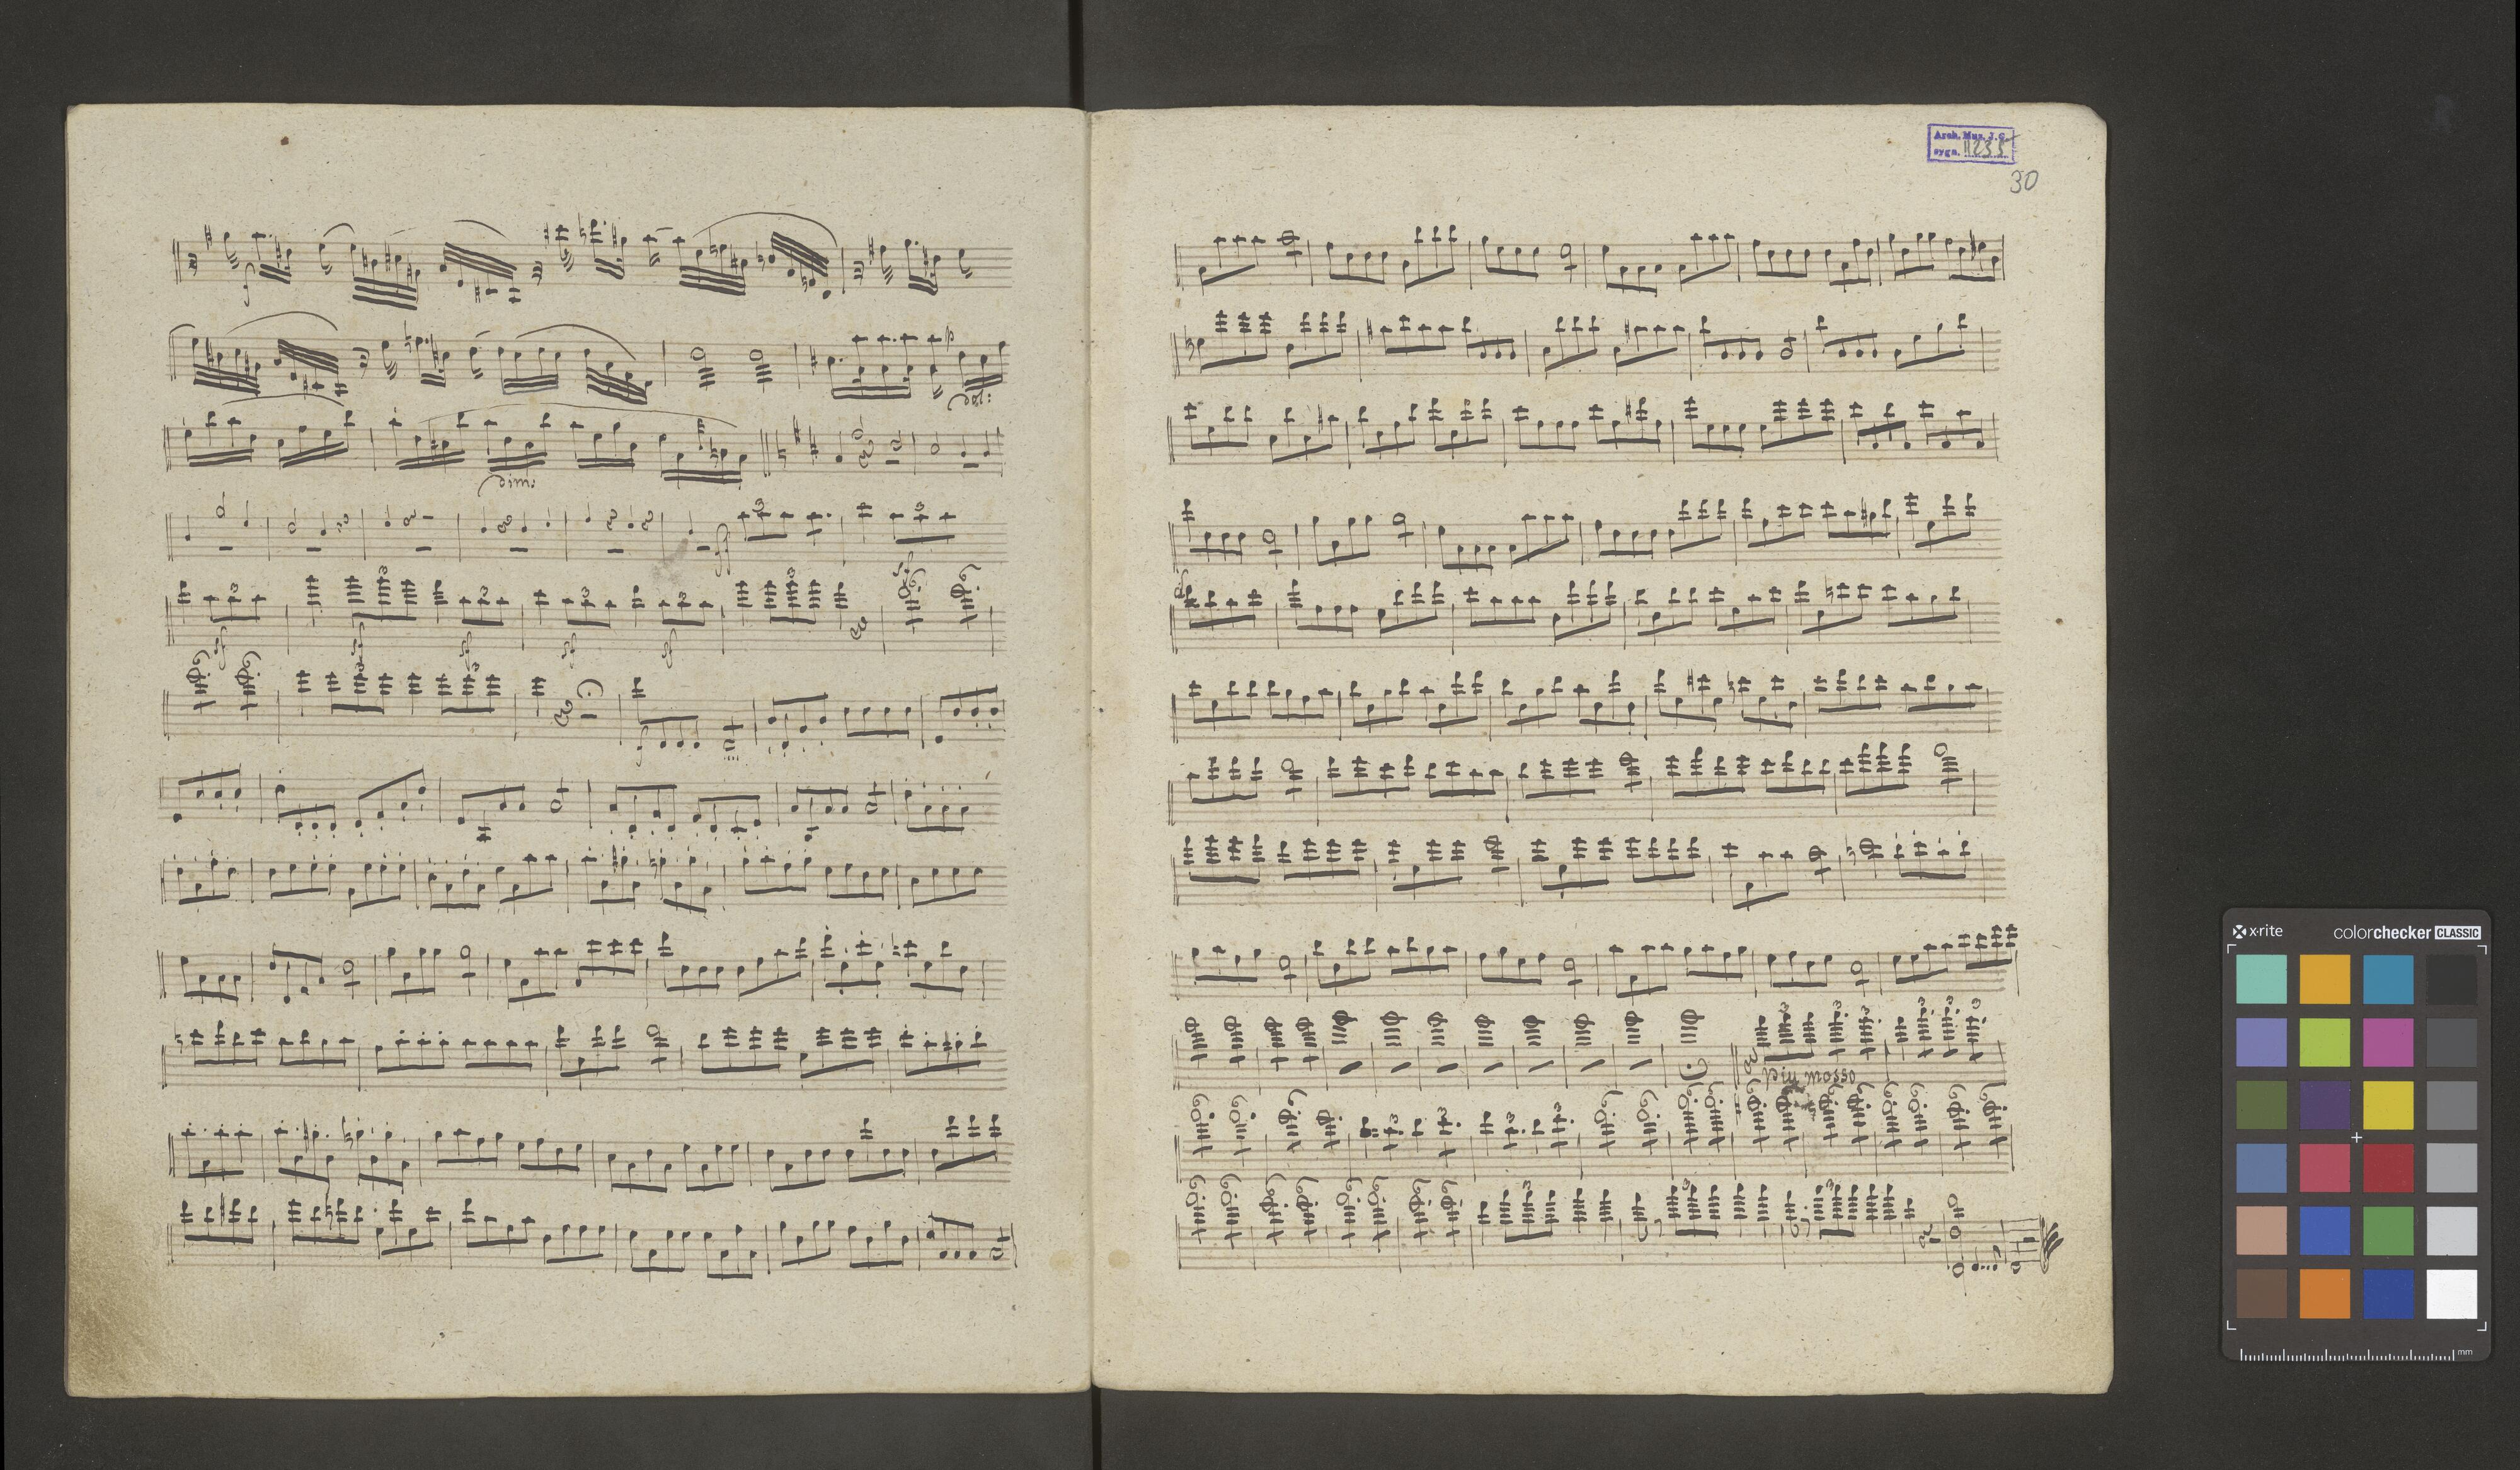 dol:
dim:
Arch. Mus. J.G.
sygn. 11235
30
più mosso
x-rite
colorchecker CLASSIC
mm